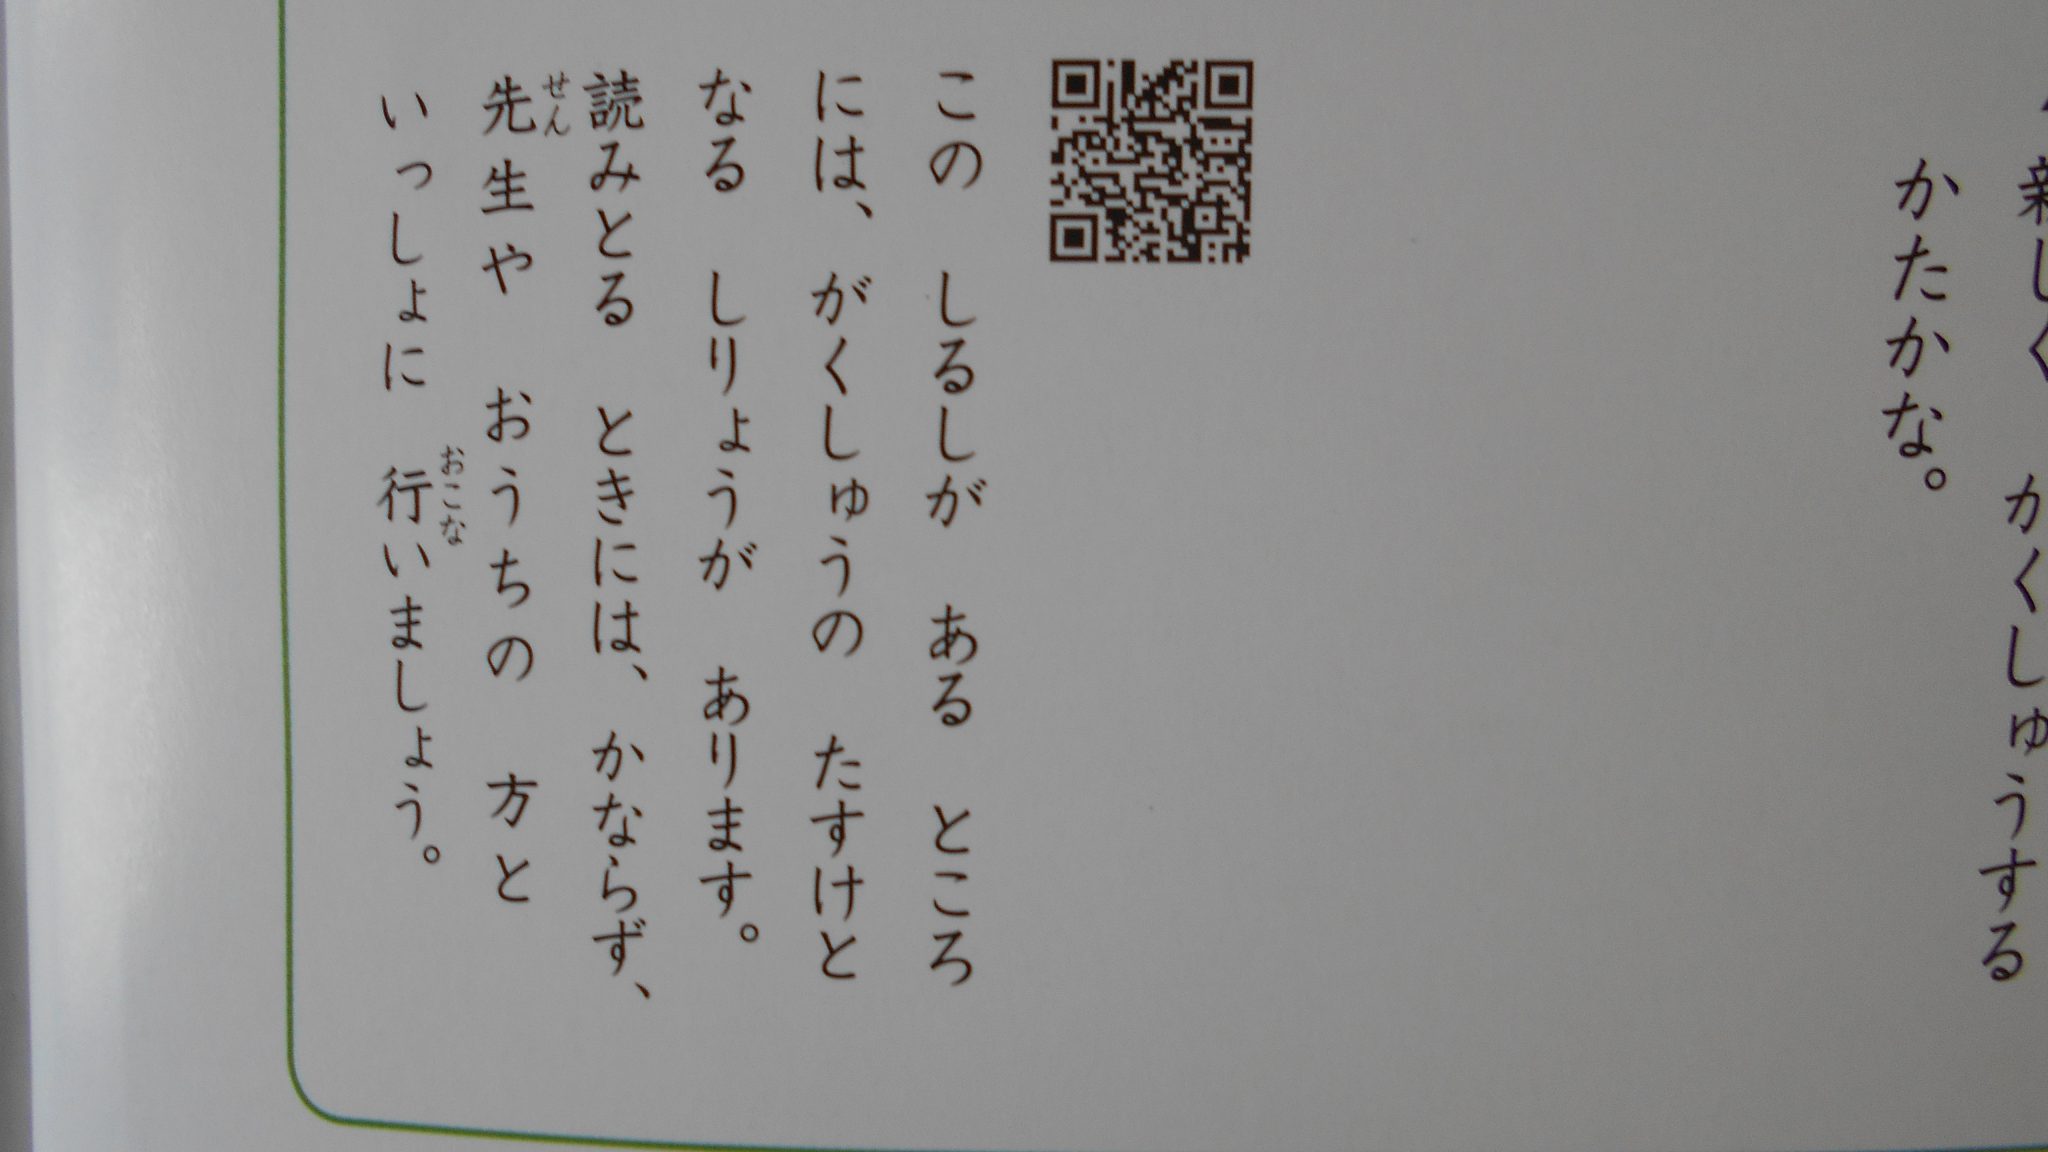 新しく がくしゅうする
かたかな。
この しるしが ある ところ
には、 がくしゅうの たすけと
なる しりょうが あります。
読みとる ときには、かならず、
先生や おうちの 方と
せん
いっしょに 行いましょう。
おこな